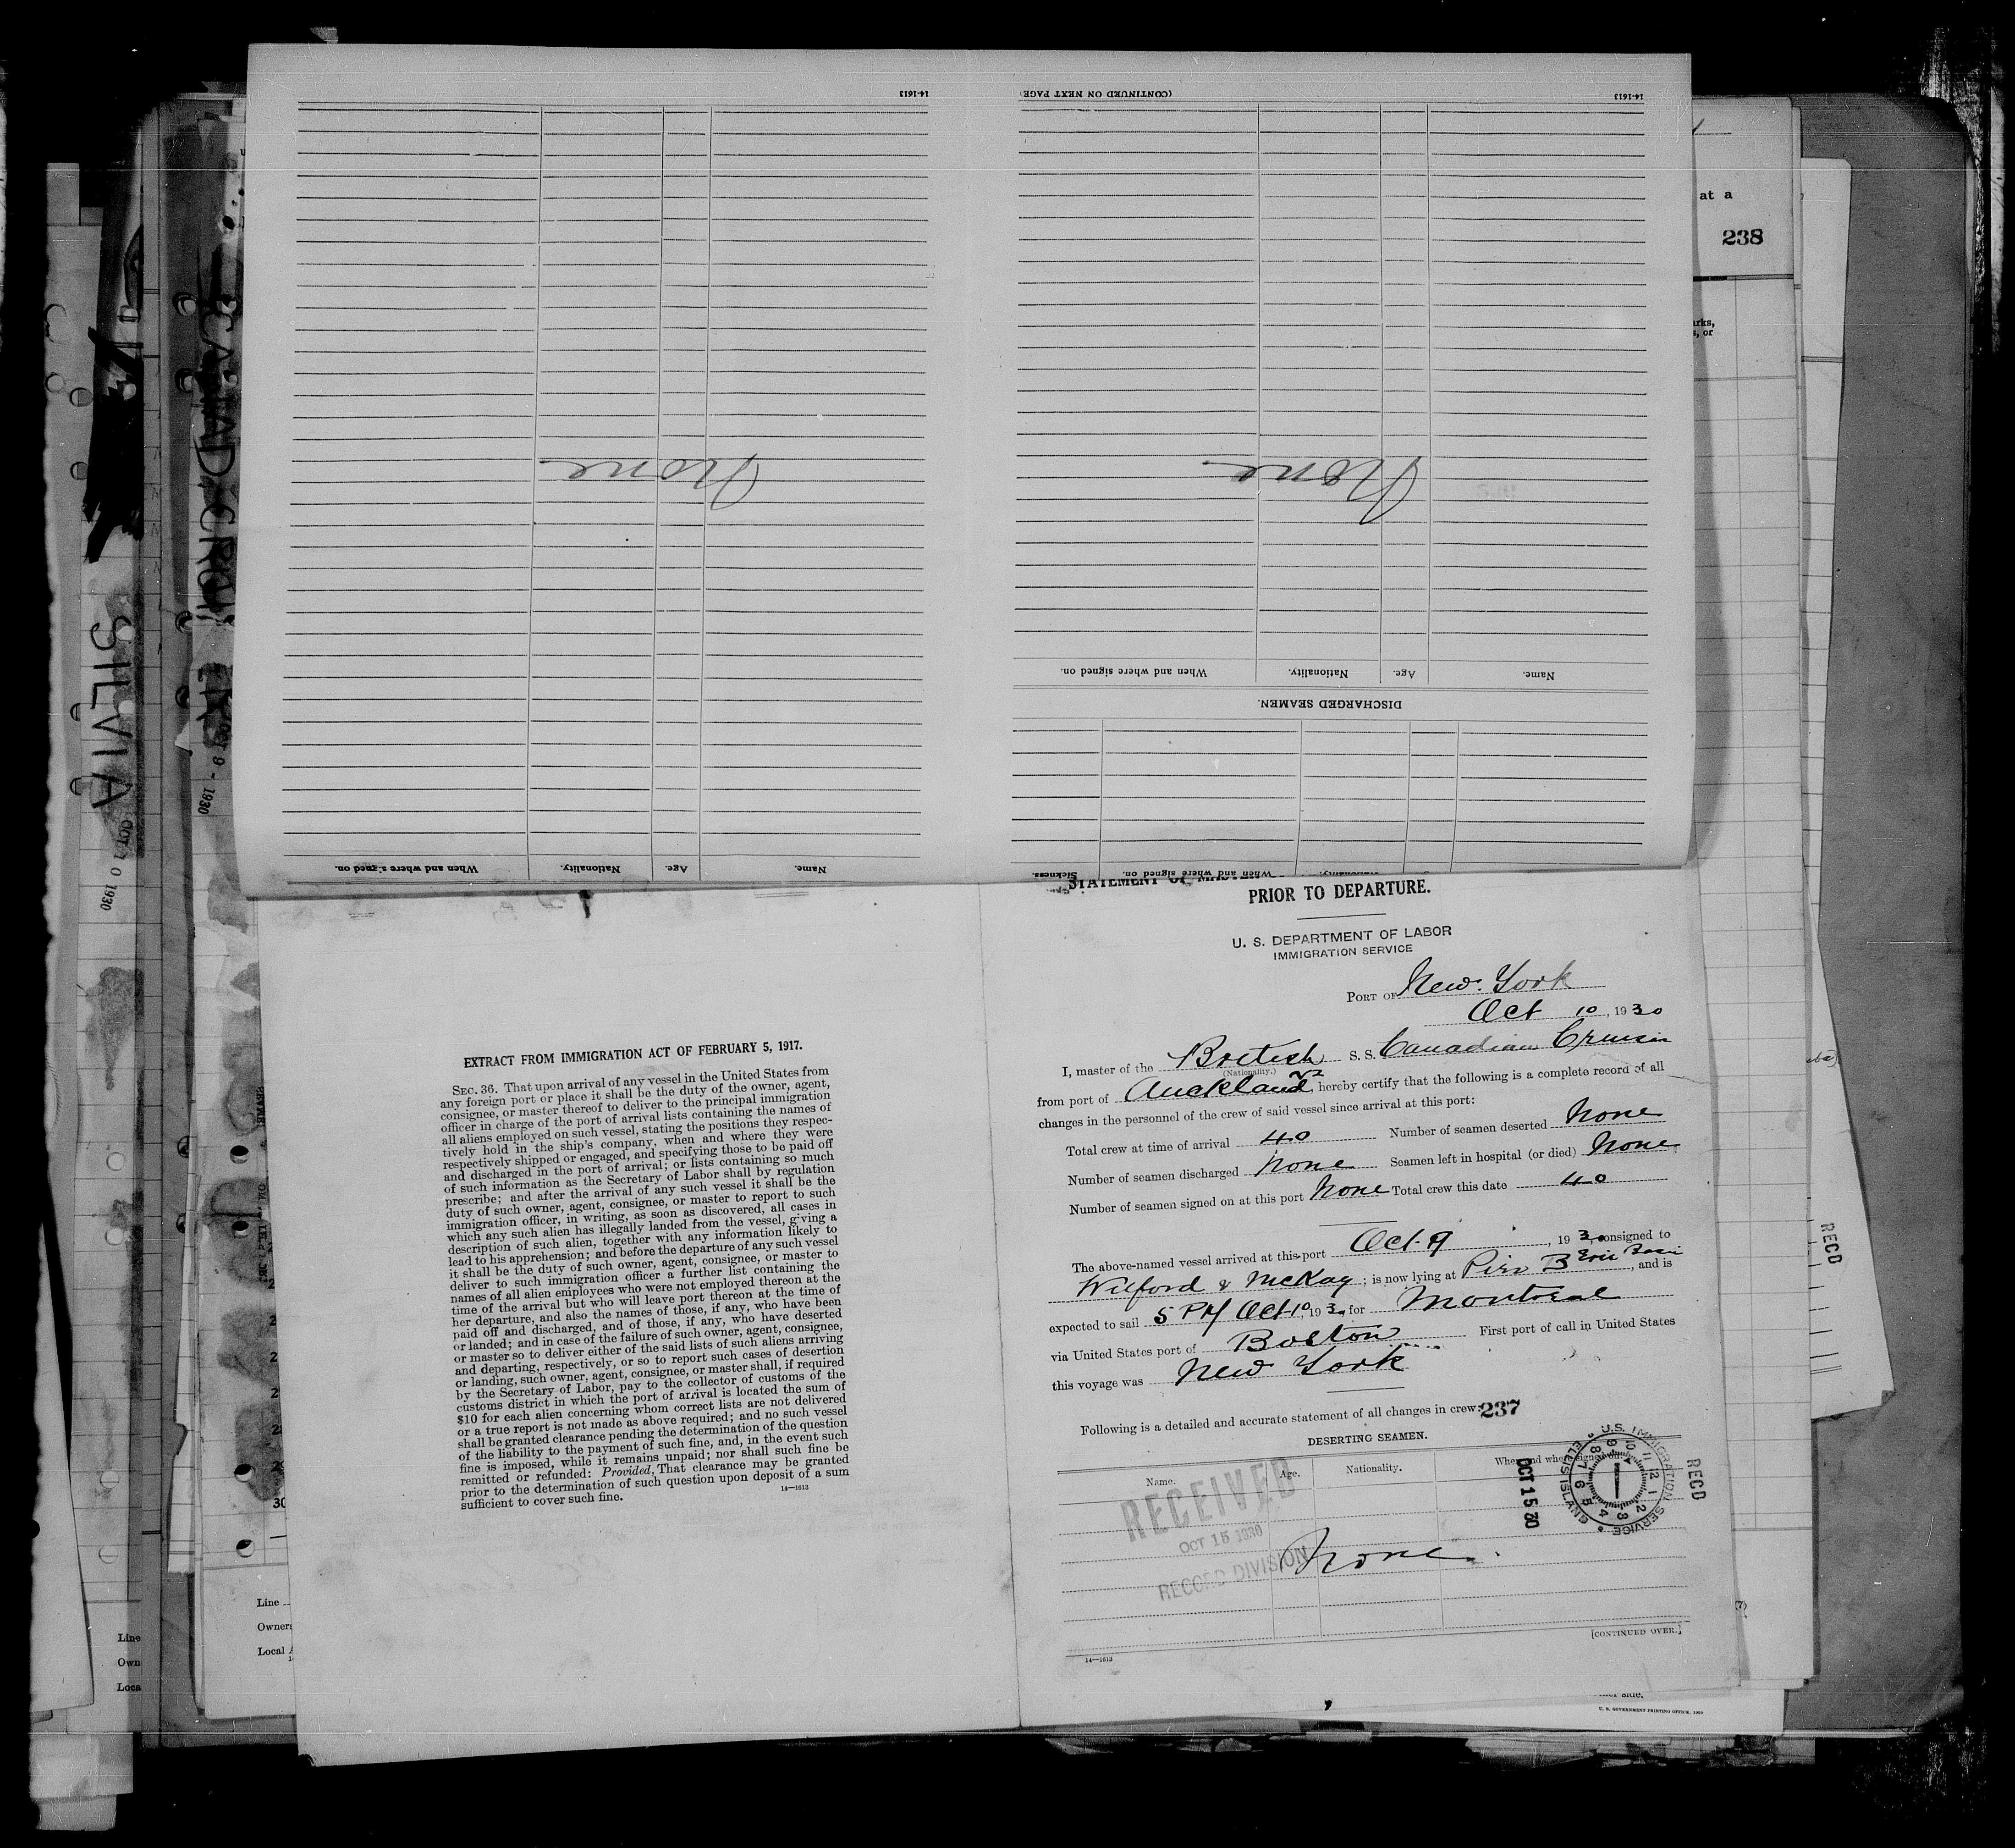 14-1613
(CONTINUED ON NEXT PAGE)
14-1613
None
None
Name. Age. Nationality. When and where signed on.
DISCHARGED SEAMEN.
Name. Age. Nationality. When and where signed on.
When and where signed on. Sickness.
at a
238
SILVIA
OCT 10 1930
OCT 9 - 1930
STATEMENT OF
PRIOR TO DEPARTURE.
U. S. DEPARTMENT OF LABOR
IMMIGRATION SERVICE
PORT OF New York
Oct 10, 1930
I, master of the British S. S. Canadian Cruiser
(Nationality.)
from port of Auckland NZ hereby certify that the following is a complete record of all
changes in the personnel of the crew of said vessel since arrival at this port:
Total crew at time of arrival 40 Number of seamen deserted None
Number of seamen discharged None Seamen left in hospital (or died) None
Number of seamen signed on at this port None Total crew this date 40
The above-named vessel arrived at this port Oct 9, 1930, consigned to
Wilford & McKay; is now lying at Pier B Erie Basin, and is
expected to sail 5 PM Oct 10, 1930 for Montreal
via United States port of Boston First port of call in United States
this voyage was New York
Following is a detailed and accurate statement of all changes in crew:
237
DESERTING SEAMEN.
Name. Age. Nationality. When and where signed on.
None
RECEIVED
OCT 15 1930
RECORD DIVISION
OCT 15 30
U.S. IMMIGRATION SERVICE • ELLIS ISLAND •
RECD
RECD
[CONTINUED OVER.]
14—1613
EXTRACT FROM IMMIGRATION ACT OF FEBRUARY 5, 1917.
SEC. 36. That upon arrival of any vessel in the United States from
any foreign port or place it shall be the duty of the owner, agent,
consignee, or master thereof to deliver to the principal immigration
officer in charge of the port of arrival lists containing the names of
all aliens employed on such vessel, stating the positions they respec-
tively hold in the ship's company, when and where they were
respectively shipped or engaged, and specifying those to be paid off
and discharged in the port of arrival; or lists containing so much
of such information as the Secretary of Labor shall by regulation
prescribe; and after the arrival of any such vessel it shall be the
duty of such owner, agent, consignee, or master to report to such
immigration officer, in writing, as soon as discovered, all cases in
which any such alien has illegally landed from the vessel, giving a
description of such alien, together with any information likely to
lead to his apprehension; and before the departure of any such vessel
it shall be the duty of such owner, agent, consignee, or master to
deliver to such immigration officer a further list containing the
names of all alien employees who were not employed thereon at the
time of the arrival but who will leave port thereon at the time of
her departure, and also the names of those, if any, who have been
paid off and discharged, and of those, if any, who have deserted
or landed; and in case of the failure of such owner, agent, consignee,
or master so to deliver either of the said lists of such aliens arriving
and departing, respectively, or so to report such cases of desertion
or landing, such owner, agent, consignee, or master shall, if required
by the Secretary of Labor, pay to the collector of customs of the
customs district in which the port of arrival is located the sum of
$10 for each alien concerning whom correct lists are not delivered
or a true report is not made as above required; and no such vessel
shall be granted clearance pending the determination of the question
of the liability to the payment of such fine, and, in the event such
fine is imposed, while it remains unpaid; nor shall such fine be
remitted or refunded: Provided, That clearance may be granted
prior to the determination of such question upon deposit of a sum
sufficient to cover such fine.
14—1613
30
Line
Owners
Local
Line
Own
Loca
U. S. GOVERNMENT PRINTING OFFICE